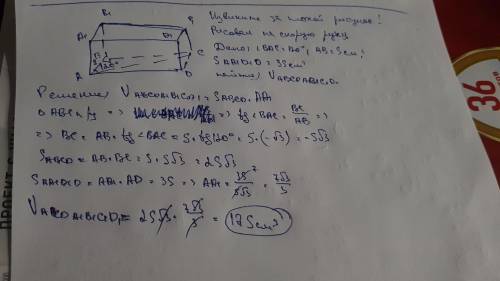 B₁
C₁
A₁
D₁
C
A
D
120°
Извините за плохой рисунок!
Рисовал на скорую руку
Дано: ∠BAC=120°, AB=5см;
S AA₁D₁D = 35см²
найти: V ABCDA₁B₁C₁D₁
Решение: V ABCDA₁B₁C₁D₁ = S ABCD · AA₁
=> tg ∠BAC = BC/AB =>
=> BC = AB · tg ∠BAC = 5 · tg120° = 5 · (-√3) = -5√3
S ABCD = AB · BC = 5 · 5√3 = 25√3
S AA₁D₁D = AA₁ · AD = 35 => AA₁ = 35/5√3 = 7√3/3
V ABCDA₁B₁C₁D₁ = 25√3 · 7√3/3 = 175см³
36